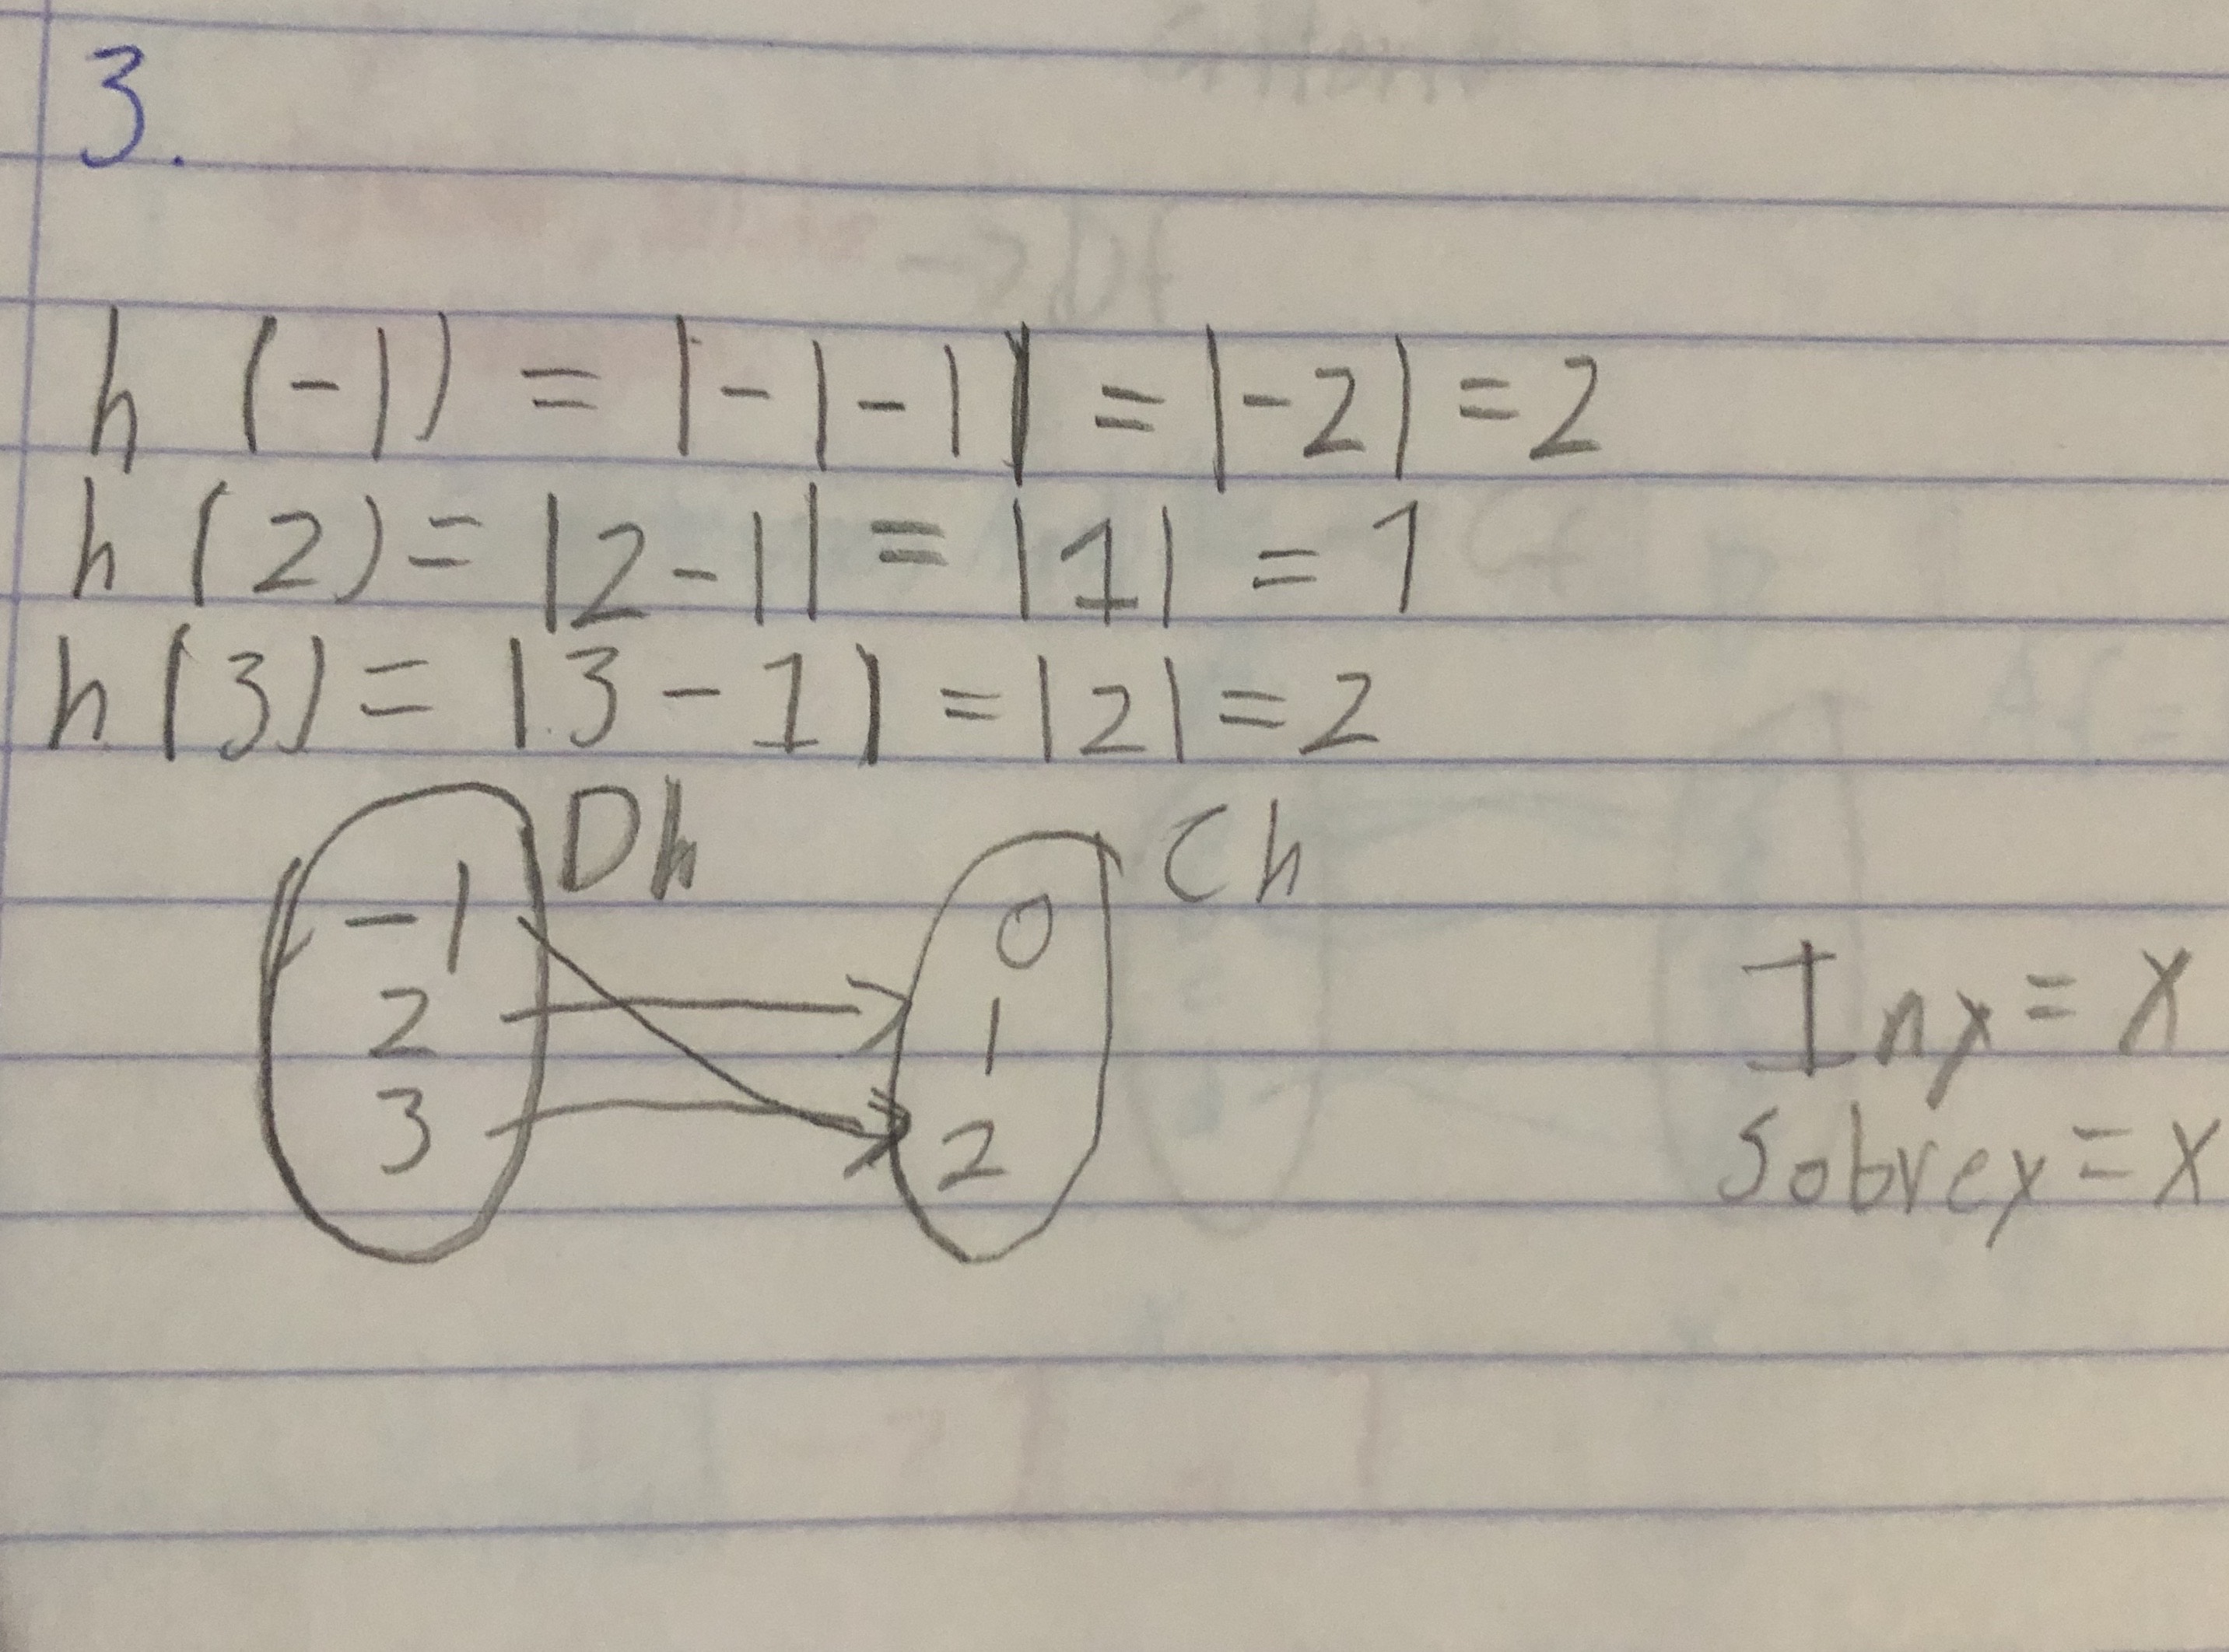 3.
h (-1) = |-1-1| = |-2| = 2
h (2) = |2-1| = |1| = 1
h (3) = |3-1| = |2| = 2
Dh Ch
-1 0
2 1
3 2
Inx = X
Sobrex = X